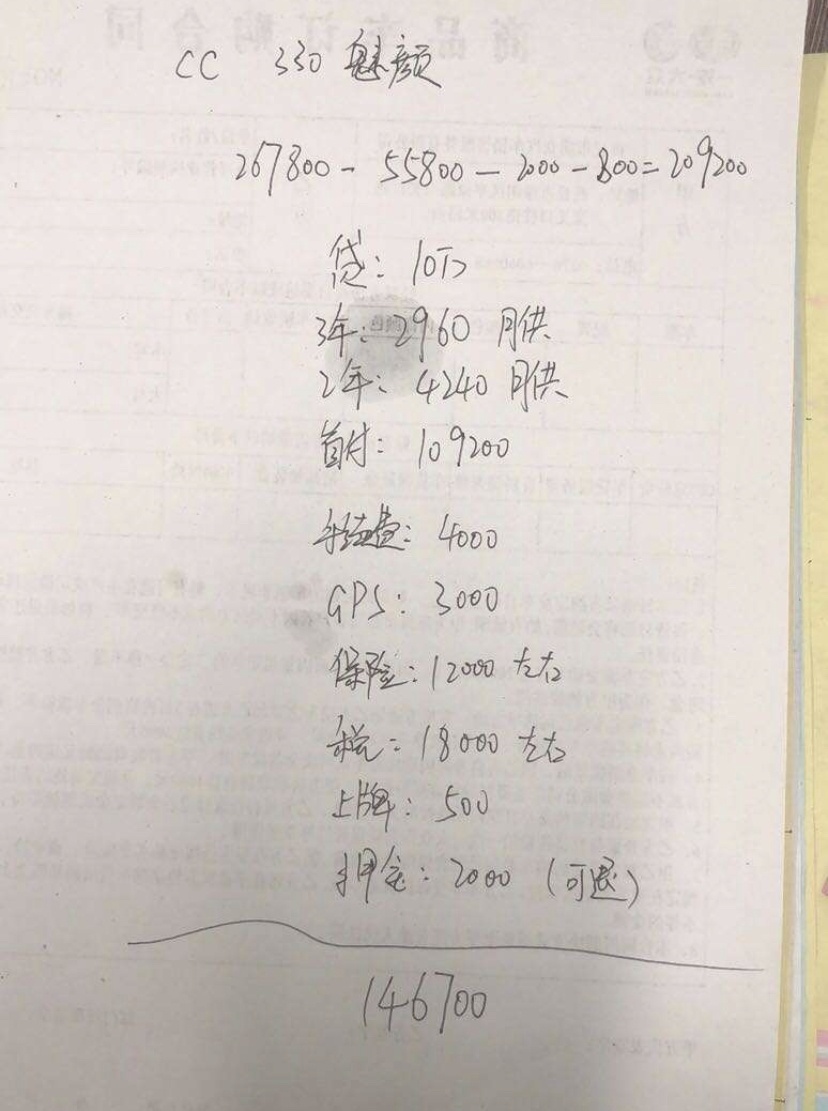 CC 330 魅颜
267800 - 55800 - 2000 - 800 = 209200
贷: 10万
3年: 2960 月供
2年: 4240 月供
首付: 109200
手续费: 4000
GPS: 3000
保险: 12000 左右
税: 18000 左右
上牌: 500
押金: 2000 (可退)
146700